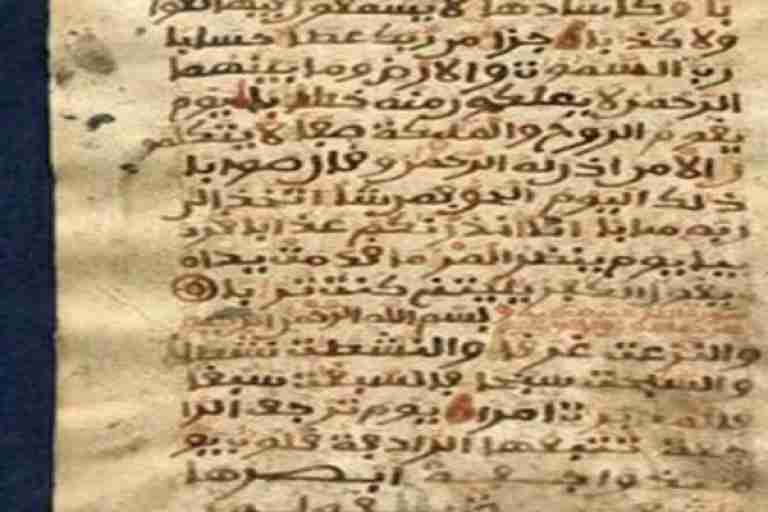 با وكاسا دهفا لا يسمعون فيها لغوا
ولا كذبا جزا من ربك عطا حسابا
رب السموت والارض وما بينهما
الرحمن لا يملكون منه خطابا يوم
يقوم الروح والمليكة صفا لا يتكلمو
ن الا من اذن له الرحمن وقال صوابا
ذلك اليوم الحق فمن شا اتخذ الى
ربه مابا انا انذرنكم عذابا قر
يبا يوم ينظر المر ما قدمت يداه
ويقول الكافر يليتني كنت تربا
بسم الله الرحمن الرحيم
والنزعت غرقا والنشطت نشطا
والسبحت سبحا فالسبقت سبقا
فالمدبرت امرا يوم ترجف الرا
جفة تتبعها الرادفة قلوب يو
ميذ واجفة ابصرها